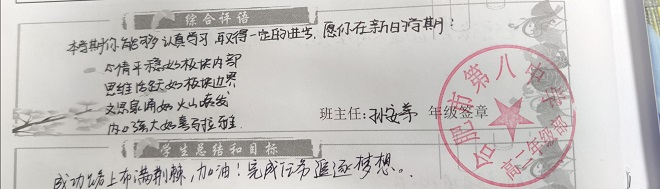 综合评语
本学期你能够认真学习,取得一定的进步,愿你在新的学期:
心情平稳如板块内部
思维活跃如板块边界
文思泉涌如火山喷发
内心强大如喜马拉雅
班主任: 年级签章
合肥市第八中学
高二年级部
学生总结和目标
成功路上布满荆棘,加油!完成任务追逐梦想。